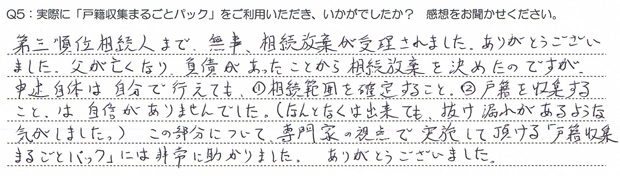 Q5：実際に「戸籍収集まるごとパック」をご利用いただき、いかがでしたか？ 感想をお聞かせください。
第三順位相続人まで、無事、相続放棄が受理されました。ありがとうござい
ました。父が亡くなり、負債があったことから相続放棄を決めたのですが、
申述自体は自分で行えても、①相続範囲を確定すること、②戸籍を収集する
こと、は自信がありませんでした。（なんとなくは出来ても、抜け漏れがあるような
気がしました。） この部分について、専門家の視点で実施して頂ける「戸籍収集
まるごとパック」には非常に助かりました。 ありがとうございました。